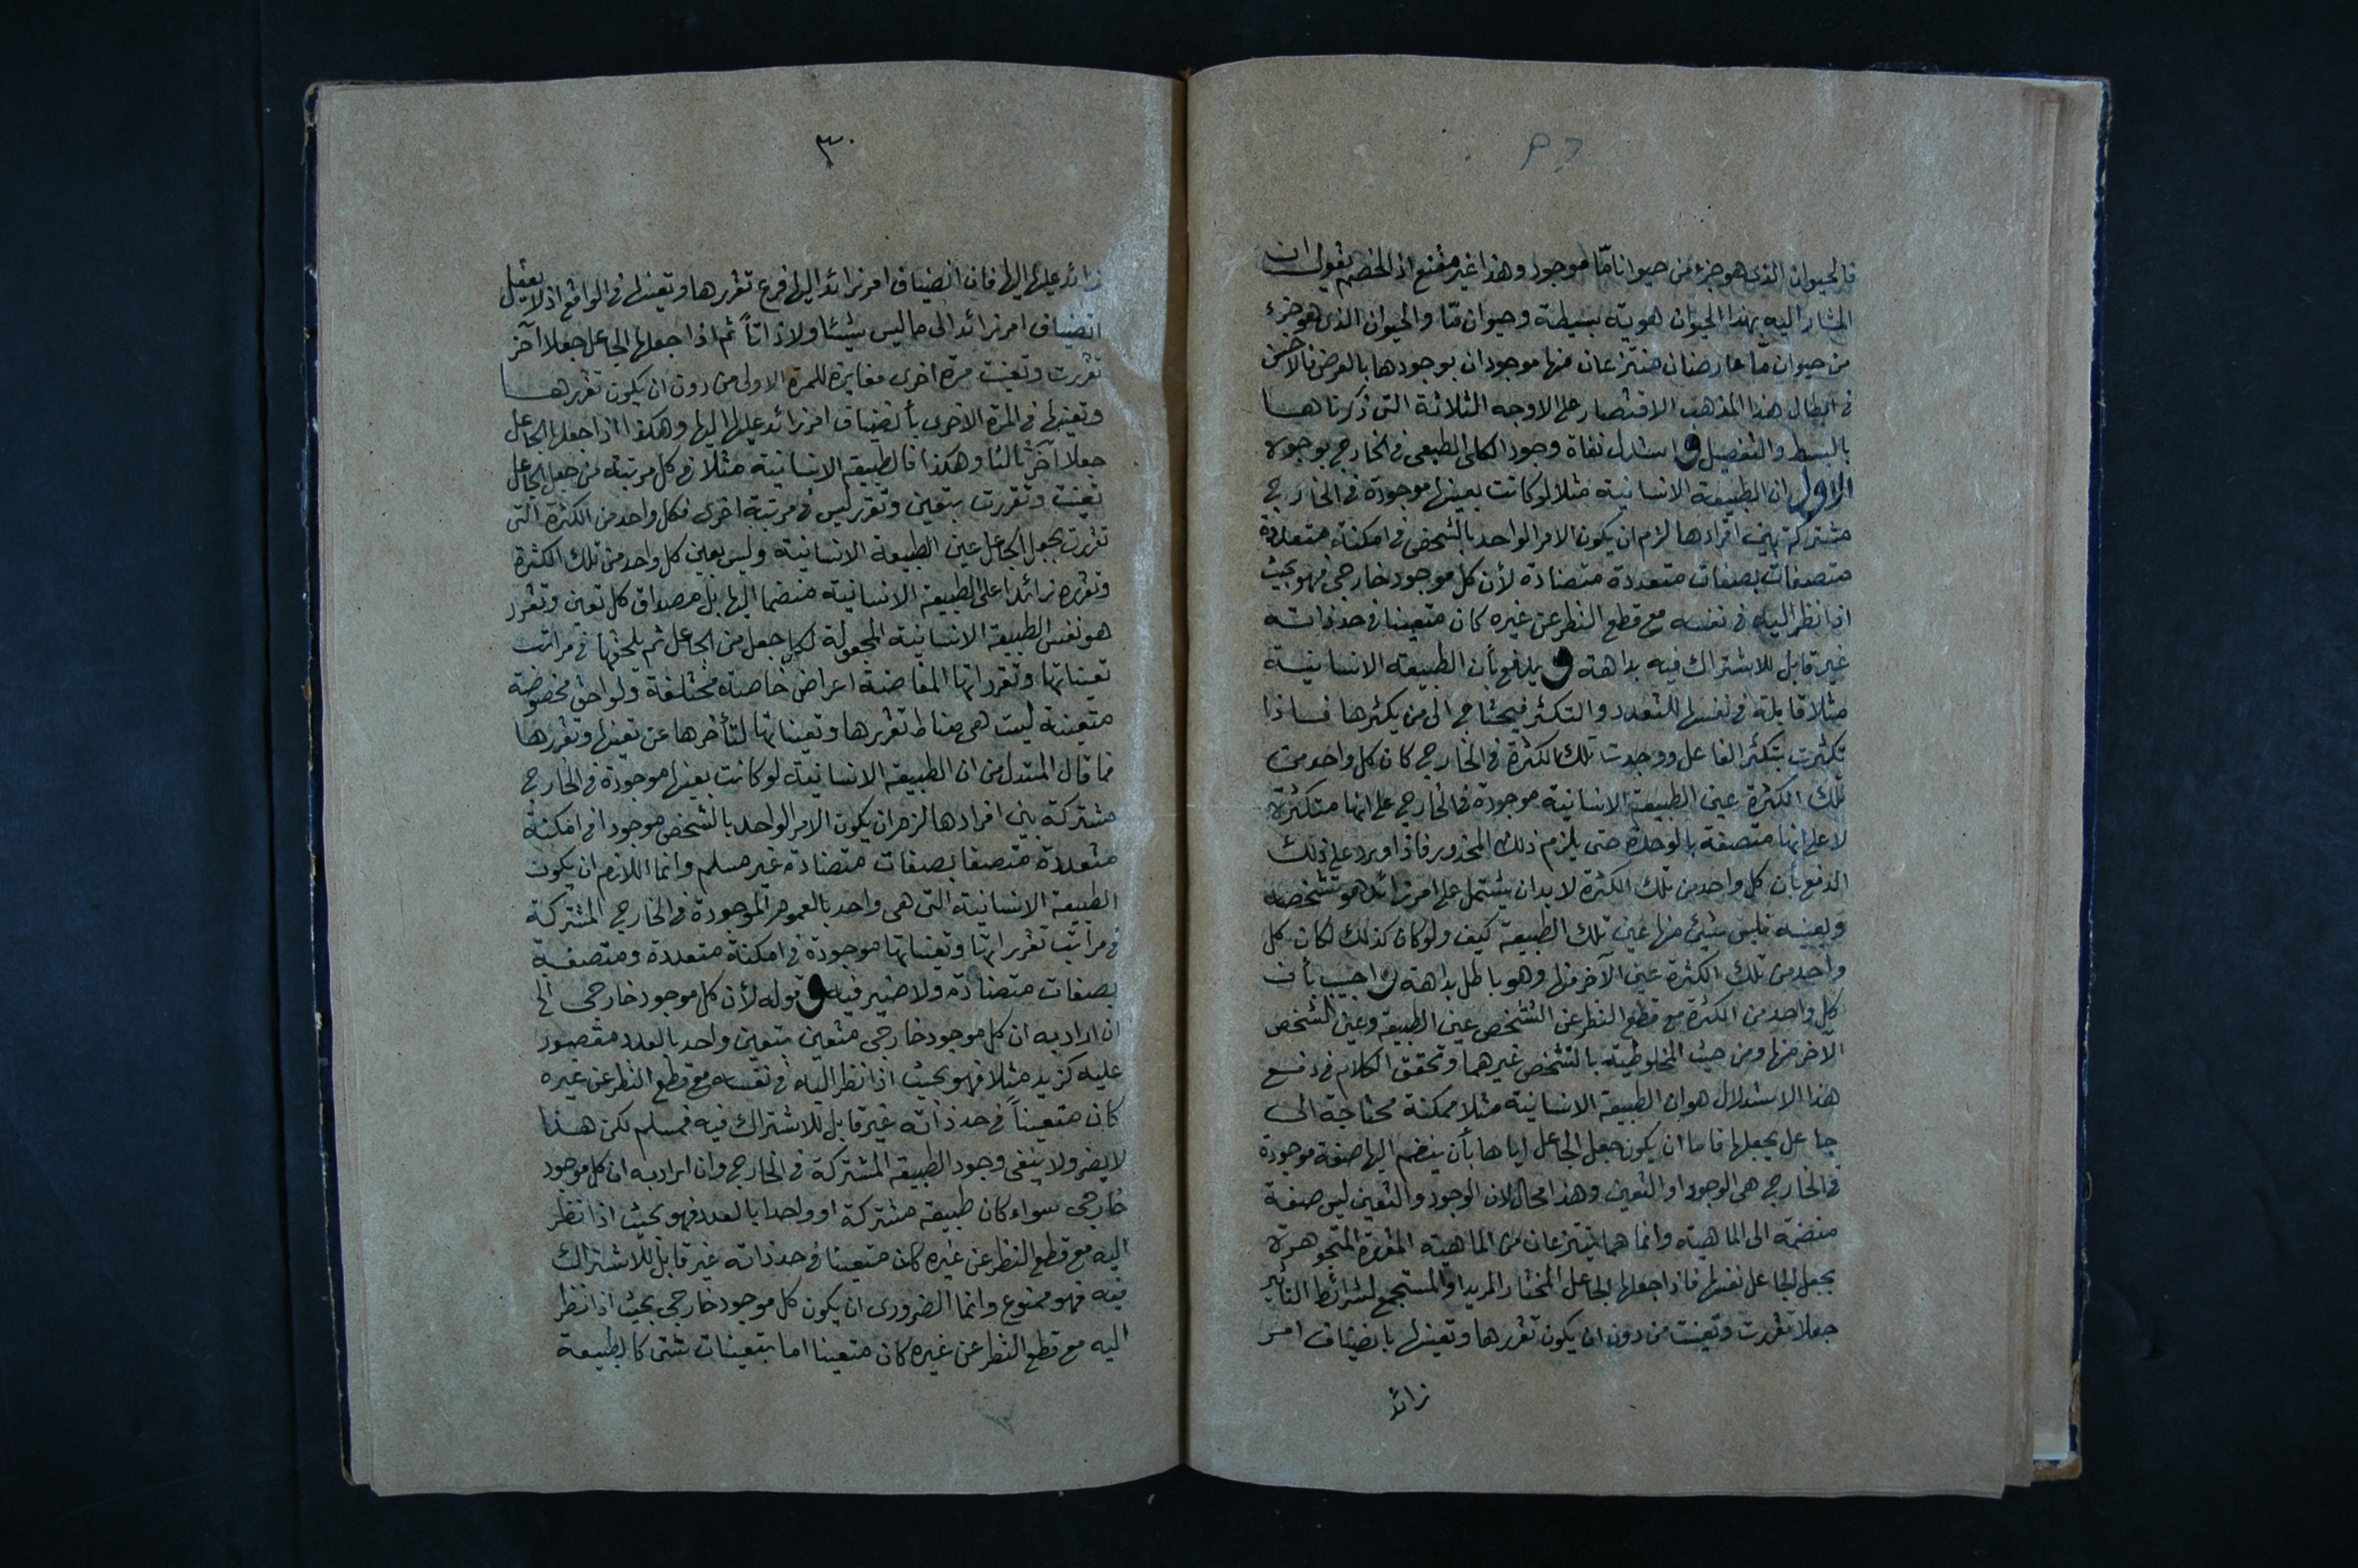 فالحيوان الذي هو جزء من حيوان ما موجود وهذا غير مقنع اذ الخصم يقول ان
المشار اليه بهذا الحيوان هوية بسيطة وحيوان مّا والحيوان الذي هو جزء
من حيوان مّا عارضان منتزعان منها موجودان بوجودها بالعرض فالاحسن
في ابطال هذا المذهب الاقتصار على الاوجه الثلاثة التى ذكرناها
بالبسط والتفصيل و استدل نفاة وجود الكلى الطبيعى فى الخارج بوجوه
الاول ان الطبيعة الانسانية مثلا لو كانت بعينها موجودة فى الخارج
مشتركة بين افرادها لزم ان يكون الامر الواحد بالشخص فى امكنة متعددة
متصفات بصفات متعددة متضادة لأن كل موجود خارجى فهو بحيث
اذا نظر اليه فى نفسه مع قطع النظر عن غيره كان متعينا فى حد ذاته
غير قابل للاشتراك فيه بداهة و يدفع بأن الطبيعة الانسانية
مثلا قابلة فى نفسها للتعدد والتكثر فيحتاج الى من يكثرها فاذا
تكثرت بتكثر الفاعل ووجدت تلك الكثرة فى الخارج كان كل واحد من
تلك الكثرة عين الطبيعة الانسانية موجودة فى الخارج على انها متكثرة
لا على انها متصفة بالوحدة حتى يلزم ذلك المحذور فاذا اورد على ذلك
الدفع بأن كل واحد من تلك الكثرة لا بد ان يشتمل على امر زائد هو تشخصه
وتعينه فليس شيئ منها عين تلك الطبيعة كيف ولو كان كذلك لكان كل
واحد من تلك الكثرة عين الآخر منها وهو باطل بداهة و اجيب بأن
كل واحد من الكثرة مع قطع النظر عن التشخص عين الطبيعة وعين الشخص
الآخر منها ومن حيث المخلوطية بالتشخص غيرهما وتحقق الكلام فى دفع
هذا الاستدلال هو ان الطبيعة الانسانية مثلا ممكنة محتاجة الى
جاعل يجعلها فاما ان يكون جعل الجاعل اياها بأن ينضم اليها صفة موجودة
فى الخارج هى الوجود او التعين وهذا محال لان الوجود والتعين ليس صفة
منضمة الى الماهية وانما هما ينتزعان من الماهية المتقررة المتجوهرة
بجعل الجاعل نفسها فاذا جعلها الجاعل المختار المريد او المستجمع لشرائط التأثير
جعلا تقررت وتعينت من دون ان يكون تقررها وتعينها بانضياف امر
زائد
٣٠
زائد عليها اليها فان انضياف امر زائد اليها فرع تقررها وتعينها فى الواقع اذ لا يعقل
انضياف امر زائد الى ما ليس شيئا ولا ذاتاً ثم اذا جعلها الجاعل جعلا آخر
تقررت وتعينت مرة اخرى مغايرة للمرة الاولى من دون ان يكون تقررها
وتعينها فى المرة الاخرى بأنضياف امر زائد عليها اليها وهكذا اذا جعلها الجاعل
جعلا آخر ثالثا وهكذا فالطبيعة الانسانية مثلا فى كل مرتبة من جعل الجاعل
تعينت وتقررت بتعين وتقرر ليس فى مرتبة اخرى فكل واحد من الكثرة التى
تقررت بجعل الجاعل عين الطبيعة الانسانية وليس تعين كل واحد من تلك الكثرة
وتقرره زائدا على الطبيعة الانسانية منضما اليها بل مصداق كل تعين وتقرر
هو نفس الطبيعة الانسانية المجعولة لكل جعل من الجاعل ثم يلحقها فى مراتب
تعيناتها وتقرراتها المفاضة اعراض خاصة مختلفة ولواحق مخصوصة
متعينة ليست هى مناط تقررها وتعيناتها لتأخرها عن تعينها وتقررها
فما قال المستدل من ان الطبيعة الانسانية لو كانت بعينها موجودة فى الخارج
مشتركة بين افرادها لزم ان يكون الامر الواحد بالشخص موجودا فى امكنة
متعددة متصفا بصفات متضادة غير مسلم وانما اللازم ان يكون
الطبيعة الانسانية التى هى واحد بالعموم الموجودة فى الخارج المشتركة
فى مراتب تقرراتها وتعيناتها موجودة فى امكنة متعددة ومتصفة
بصفات متضادة ولا ضير فيه و قوله لأن كل موجود خارجى الخ
ان اراد به ان كل موجود خارجى متعين بتعين واحد بالعدد مقصور
عليه كزيد مثلا فهو بحيث اذا نظر اليه فى نفسه مع قطع النظر عن غيره
كان متعيناً فى حد ذاته غير قابل للاشتراك فيه فمسلم لكن هذا
لا يضر ولا ينفى وجود الطبيعة المشتركة فى الخارج وان اراد به ان كل موجود
خارجى سواء كان طبيعة مشتركة او واحدا بالعدد فهو بحيث اذا نظر
اليه مع قطع النظر عن غيره كان متعينا فى حد ذاته غير قابل للاشتراك
فيه فهو ممنوع وانما الضرورى ان يكون كل موجود خارجى بحيث اذا نظر
اليه مع قطع النظر عن غيره كان متعينا اما بتعينات شتى كالطبيعة